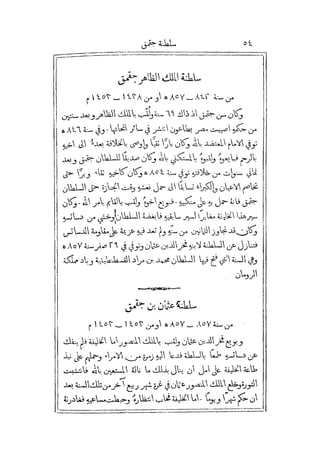 ٥٤ سلطنة جقمق
سلطنة الملك الظاهر جقمق
من سنة ٨٤٢ — ٨٥٧ * او من ١٤٣٨ — ١٤٥٣ م
وكان سن جقمق اذ ذاك ٦٩ سنة ولُقب بالملك الظاهر وبعد سنتين
من حكمه اصيبت مصر بطاعون انتشر في سائر انحائها . وفي سنة ٨٤٦ *
توفي الامام المعتضد بالله وكان بارًا نقيًا واوصى بالخلافة بعدهُ الى اخيهِ
فبايعوهُ ولقبوهُ بالمستكفي بالله وكان صديقًا للسلطان جقمق وبعد
ثماني سنوات من خلافتهِ توفي سنة ٨٥٤ * وكان كاخيهِ وبرًا حتى
تخاصم الاعيان والكبراء تسابقًا الى حمل نعشهِ وقت الجنازة حتى السلطان
جقمق فانهُ حمل بهِ على منكبيهِ . فبويع اخوهُ ولقب بالقايم بامر الله . وكان
سير هذا الخليفة مغايرًا لسير سابقيهِ فابغضهُ السلطان وخشي من دسائسهِ
وكان قد تجاوز الثمانين من سنهِ ولم تعد فيهِ عزيمة على مقاومة الدسائس
فتنازل عن السلطنة لابنهِ فخر الدين عثمان وتوفي في ٢٩ صفر سنة ٨٥٧ *
وهي السنة التي فتح فيها السلطان محمد بن مراد القسطنطينية وباد مملكة
الرومان
سلطنة عثمان بن جقمق
من سنة ٨٥٧ — ٨٥٧ * او من ١٤٥٣ — ١٤٥٣ م
وبويع فخر الدين عثمان ولقب بالملك المنصور اما الخليفة فلم ينفك
عن دسائسهِ طمعًا بالسلطة فدعا اليهِ زمرة من الامراء . وحملهم على نبذ
طاعة الخليفة على امل ان ينال بذلك ما نالهُ المستعين بالله فانتشبت
الثورة وخلع الملك المنصور عثمان في غرة شهر ربيع آخر من تلك السنة بعد
ان حكم شهرًا ويومًا . اما الخليفة فخاب انتظارهُ وحبطت مساعيهِ فغادرتهُ